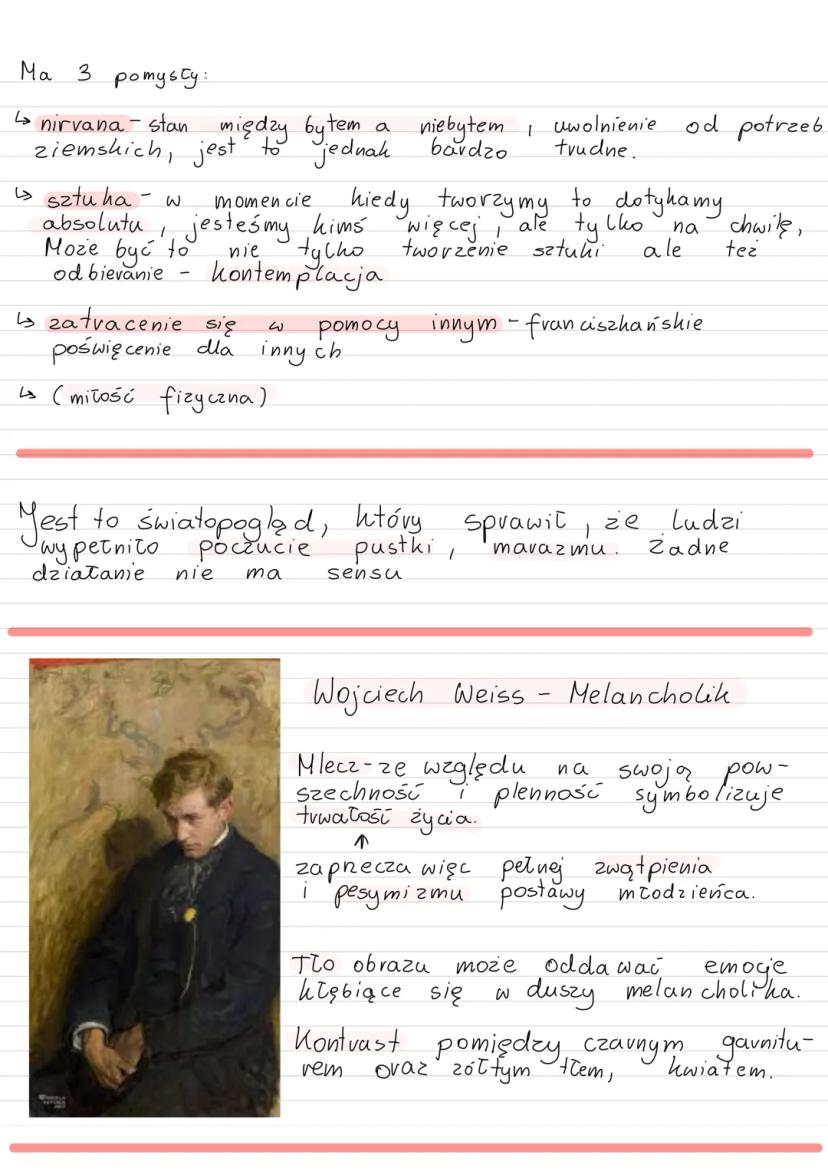 Ma 3 pomysły:
↳ nirvana - stan między bytem a niebytem, uwolnienie od potrzeb
ziemskich, jest to jednak bardzo trudne.
↳ sztuka - w momencie kiedy tworzymy to dotykamy
absolutu, jesteśmy kimś więcej, ale tylko na chwilę,
Może być to nie tylko tworzenie sztuki ale też
odbieranie - kontemplacja
↳ zatracenie się w pomocy innym - franciszkańskie
poświęcenie dla innych
↳ (miłość fizyczna)
Jest to światopogląd, który sprawił, że ludzi
wypełniło poczucie pustki, marazmu. Żadne
działanie nie ma sensu
Wojciech Weiss - Melancholik
Mlecz - ze względu na swoją pow-
szechność i plenność symbolizuje
trwałość życia.
↑
zaprzecza więc pełnej zwątpienia
i pesymizmu postawy młodzieńca.
Tło obrazu może oddawać emocje
kłębiące się w duszy melancholika.
Kontrast pomiędzy czarnym garnitu-
rem oraz żółtym tłem, kwiatem.